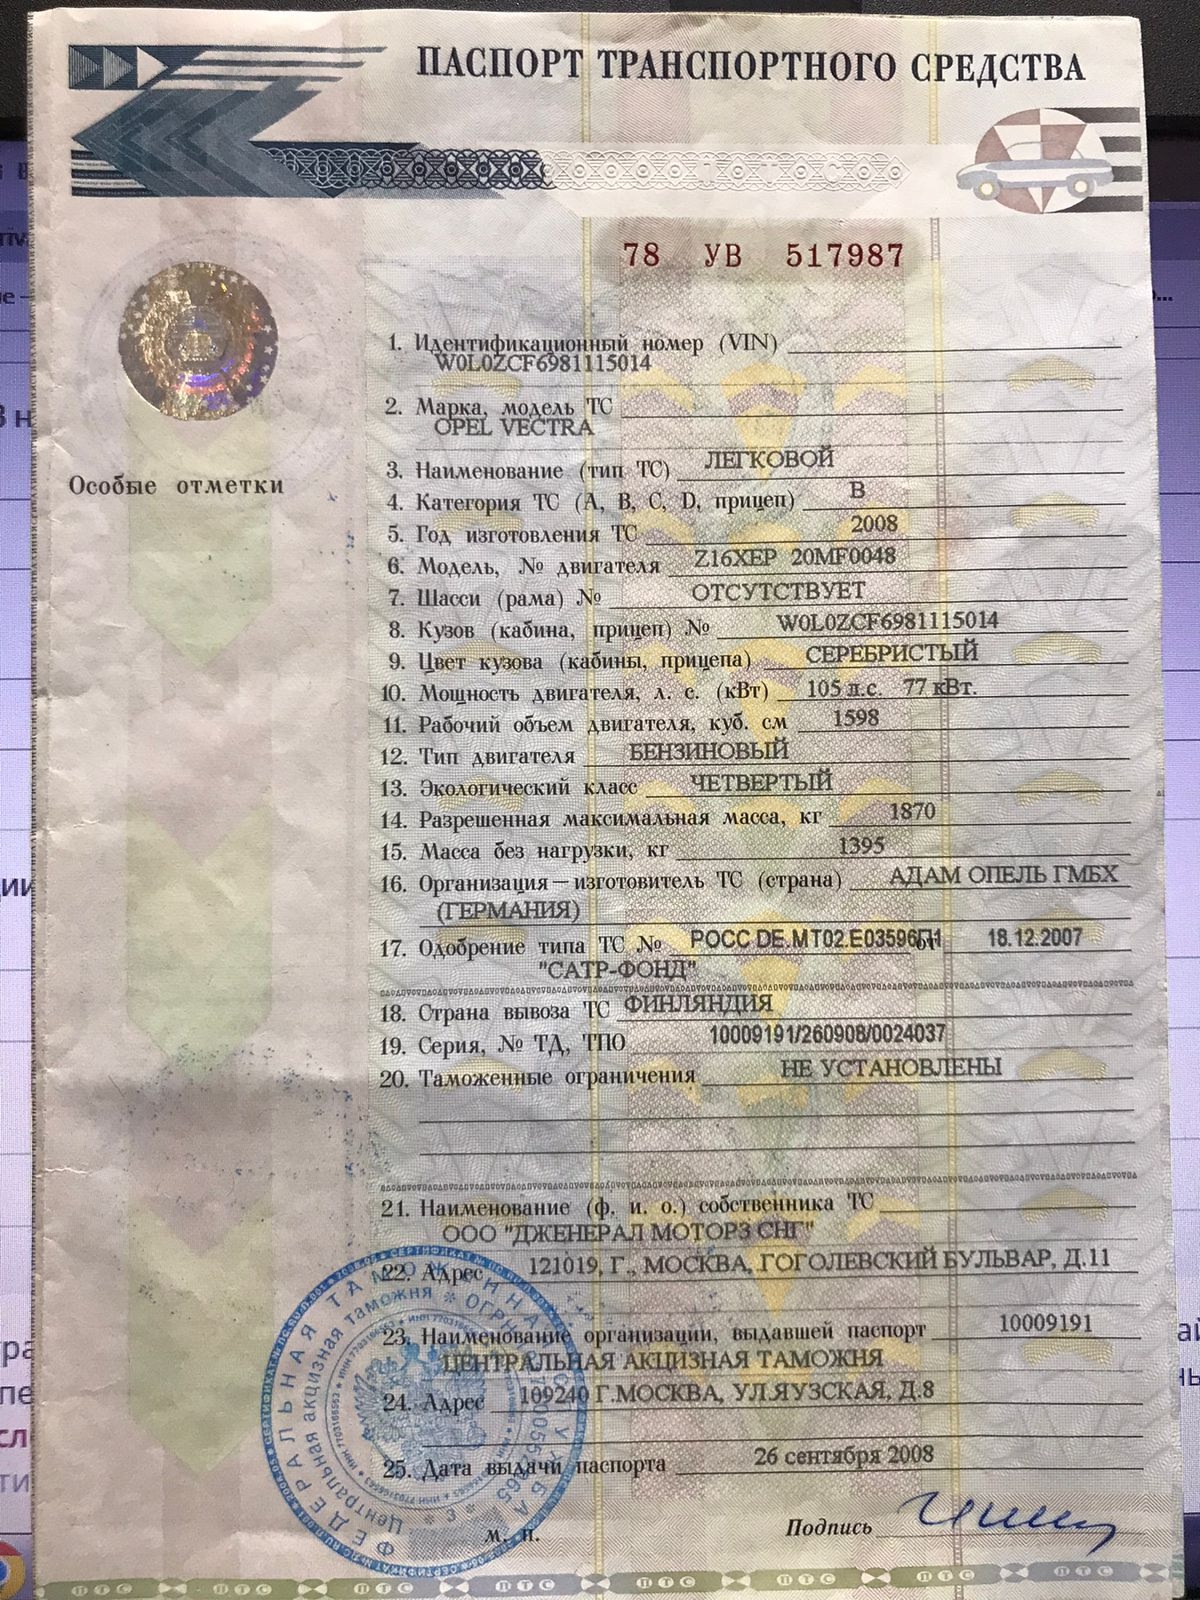 ПАСПОРТ ТРАНСПОРТНОГО СРЕДСТВА
78 УВ 517987
1. Идентификационный номер (VIN)
W0L0ZCF6981115014
2. Марка, модель ТС
OPEL VECTRA
3. Наименование (тип ТС) ЛЕГКОВОЙ
Особые отметки
4. Категория ТС (А, В, С, D, прицеп) В
5. Год изготовления ТС 2008
6. Модель, № двигателя Z16XEP 20MF0048
7. Шасси (рама) № ОТСУТСТВУЕТ
8. Кузов (кабина, прицеп) № W0L0ZCF6981115014
9. Цвет кузова (кабины, прицепа) СЕРЕБРИСТЫЙ
10. Мощность двигателя, л. с. (кВт) 105 л.с. 77 кВт.
11. Рабочий объем двигателя, куб. см 1598
12. Тип двигателя БЕНЗИНОВЫЙ
13. Экологический класс ЧЕТВЕРТЫЙ
14. Разрешенная максимальная масса, кг 1870
15. Масса без нагрузки, кг 1395
16. Организация — изготовитель ТС (страна) АДАМ ОПЕЛЬ ГМБХ
(ГЕРМАНИЯ)
17. Одобрение типа ТС № РОСС DE.MT02.E03596П1 от 18.12.2007
"САТР-ФОНД"
18. Страна вывоза ТС ФИНЛЯНДИЯ
19. Серия, № ТД, ТПО 10009191/260908/0024037
20. Таможенные ограничения НЕ УСТАНОВЛЕНЫ
21. Наименование (ф. и. о.) собственника ТС
ООО "ДЖЕНЕРАЛ МОТОРЗ СНГ"
22. Адрес 121019, Г., МОСКВА, ГОГОЛЕВСКИЙ БУЛЬВАР, Д.11
23. Наименование организации, выдавшей паспорт 10009191
ЦЕНТРАЛЬНАЯ АКЦИЗНАЯ ТАМОЖНЯ
24. Адрес 109240 Г.МОСКВА, УЛ.ЯУЗСКАЯ, Д.8
25. Дата выдачи паспорта 26 сентября 2008
м. п. Подпись
ФЕДЕРАЛЬНАЯ ТАМОЖЕННАЯ СЛУЖБА
Центральная акцизная таможня
ПТС ПТС ПТС ПТС ПТС ПТС ПТС ПТС